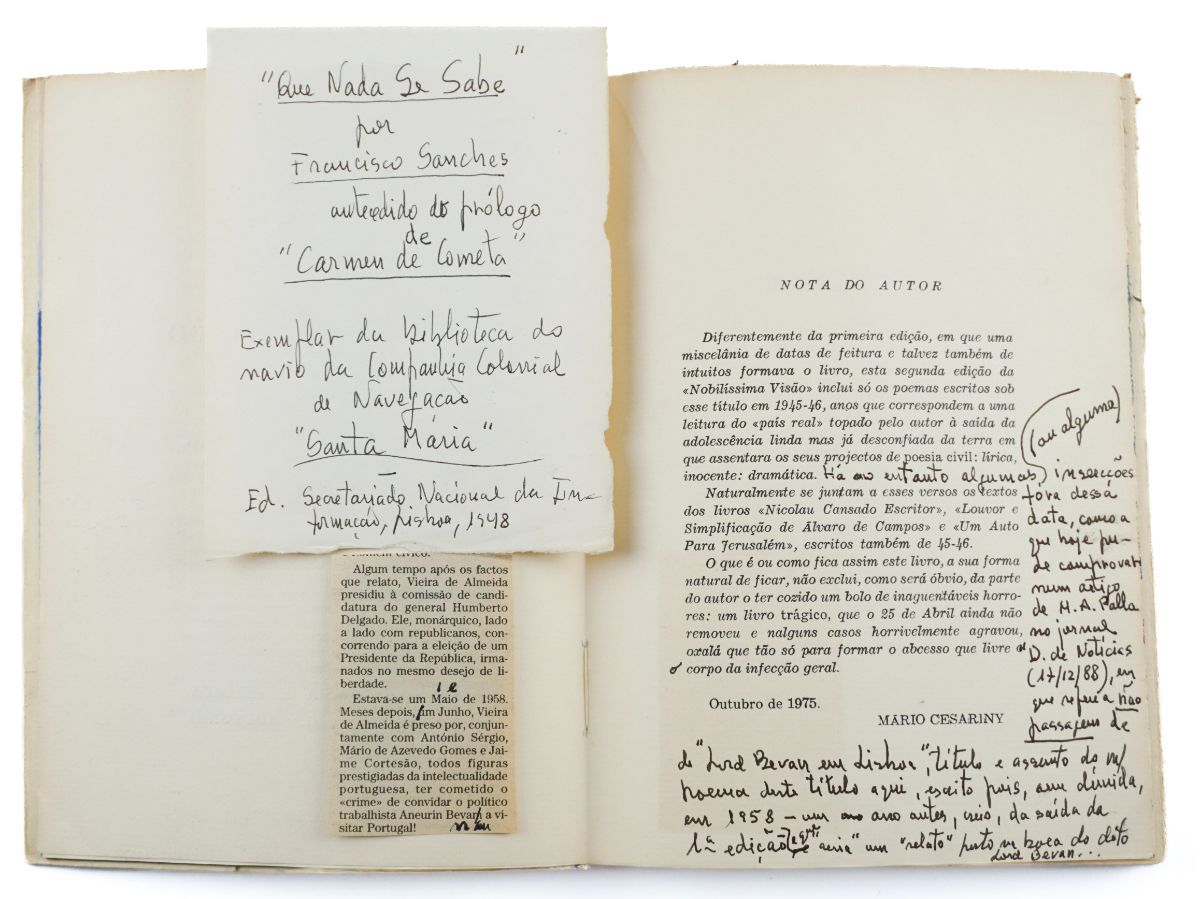 "Que Nada Se Sabe"
por
Francisco Sanches
antecedido do prólogo
de
"Carmen de Cometa"
Exemplar da biblioteca do
navio da Companhia Colonial
de Navegação
"Santa Maria"
Ed. Secretariado Nacional da In-
formação, Lisboa, 1948
Algum tempo após os factos
que relato, Vieira de Almeida
presidiu à comissão de candi-
datura do general Humberto
Delgado. Ele, monárquico, lado
a lado com republicanos, con-
correndo para a eleição de um
Presidente da República, irma-
nados no mesmo desejo de li-
berdade.
Estava-se um Maio de 1958.
Meses depois, em Junho, Vieira
de Almeida é preso por, conjun-
tamente com António Sérgio,
Mário de Azevedo Gomes e Jai-
me Cortesão, todos figuras
prestigiadas da intelectualidade
portuguesa, ter cometido o
«crime» de convidar o político
trabalhista Aneurin Bevan a vi-
sitar Portugal!
NOTA DO AUTOR
Diferentemente da primeira edição, em que uma
miscelânia de datas de feitura e talvez também de
intuitos formava o livro, esta segunda edição da
«Nobilíssima Visão» inclui só os poemas escritos sob
esse título em 1945-46, anos que correspondem a uma
leitura do «país real» topado pelo autor à saída da
adolescência linda mas já desconfiada da terra em
que assentara os seus projectos de poesia civil: lírica,
inocente: dramática. Há no entanto algumas
(ou alguma)
inserções
fora dessa
data, como a
que hoje pu-
de comprovar
num artigo
de M. A. Palla
no jornal
D. de Notícias
(17/12/88), em
que refere a não
passagem de
Naturalmente se juntam a esses versos os textos
dos livros «Nicolau Cansado Escritor», «Louvor e
Simplificação de Álvaro de Campos» e «Um Auto
Para Jerusalém», escritos também de 45-46.
O que é ou como fica assim este livro, a sua forma
natural de ficar, não exclui, como será óbvio, da parte
do autor o ter cozido um bolo de inaguentáveis horro-
res: um livro trágico, que o 25 de Abril ainda não
removeu e nalguns casos horrivelmente agravou,
oxalá que tão só para formar o abcesso que livre
o corpo da infecção geral.
Outubro de 1975.
MÁRIO CESARINY
do "Lord Bevan em Lisboa", título e assunto do m/
poema deste título aqui, escrito pois, sem dúvida,
em 1958 — um ano antes, creio, da saída da
1ª edição "um "relato" posto na boca do dito
Lord Bevan...